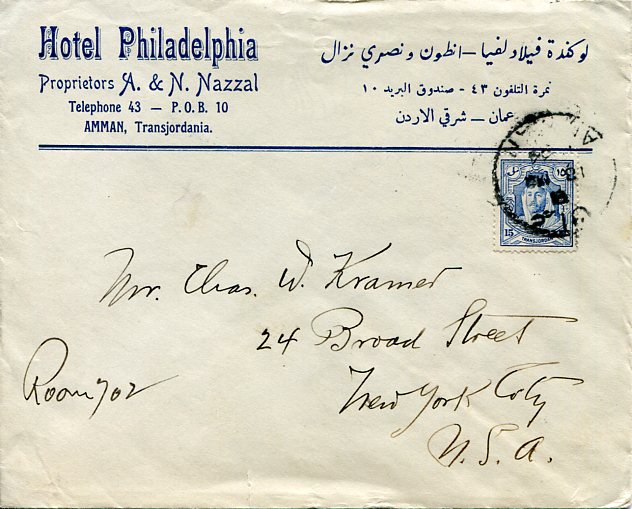 Hotel Philadelphia
Proprietors A. & N. Nazzal
Telephone 43 — P.O.B. 10
AMMAN, Transjordania.
لوكندة فيلادلفيا — انطون ونصري نزال
نمرة التلفون ٤٣ - صندوق البريد ١٠
عمان — شرقي الاردن
15
TRANSJORDAN
Mr. Chas. W. Kramer
24 Broad Street
Room 702
New York City
U.S.A.